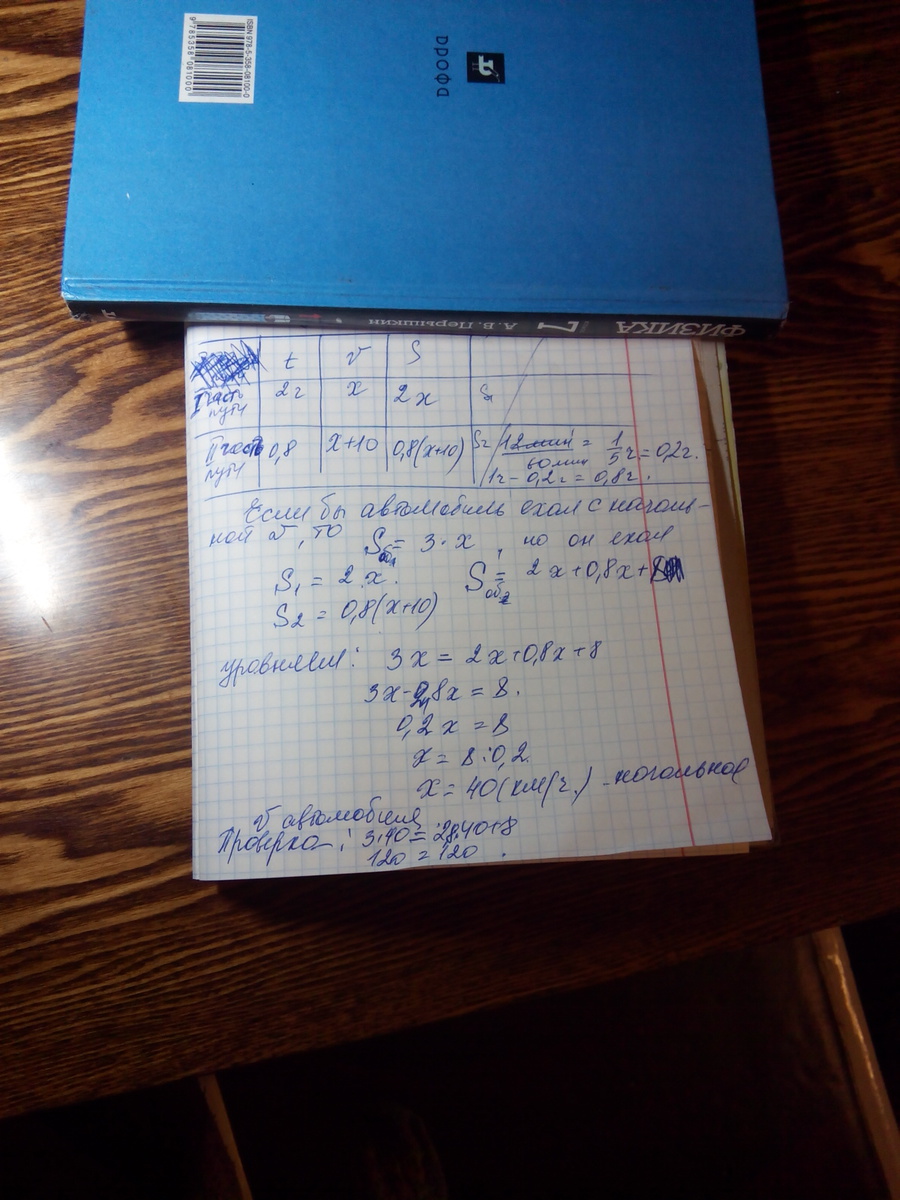 ISBN 978-5-358-08100-0
9 785358 081000
дрофа
ФИЗИКА 7 А. В. Перышкин
t v S
I часть пути 2ч x 2x S1
II часть пути 0,8 x+10 0,8(x+10) S2 12 мин / 60 мин = 1/5 ч = 0,2ч.
1ч - 0,2ч = 0,8ч.
Если бы автомобиль ехал с началь-
ной v, то Sоб1 = 3·x, но он ехал
S1 = 2·x. Sоб2 = 2x+0,8x+8
S2 = 0,8(x+10)
уровняем: 3x = 2x+0,8x+8
3x-2,8x = 8.
0,2x = 8
x = 8:0,2.
x = 40(км/ч.) - начальная
v автомобиля
Проверка: 3·40 = 2,8·40+8
120 = 120.